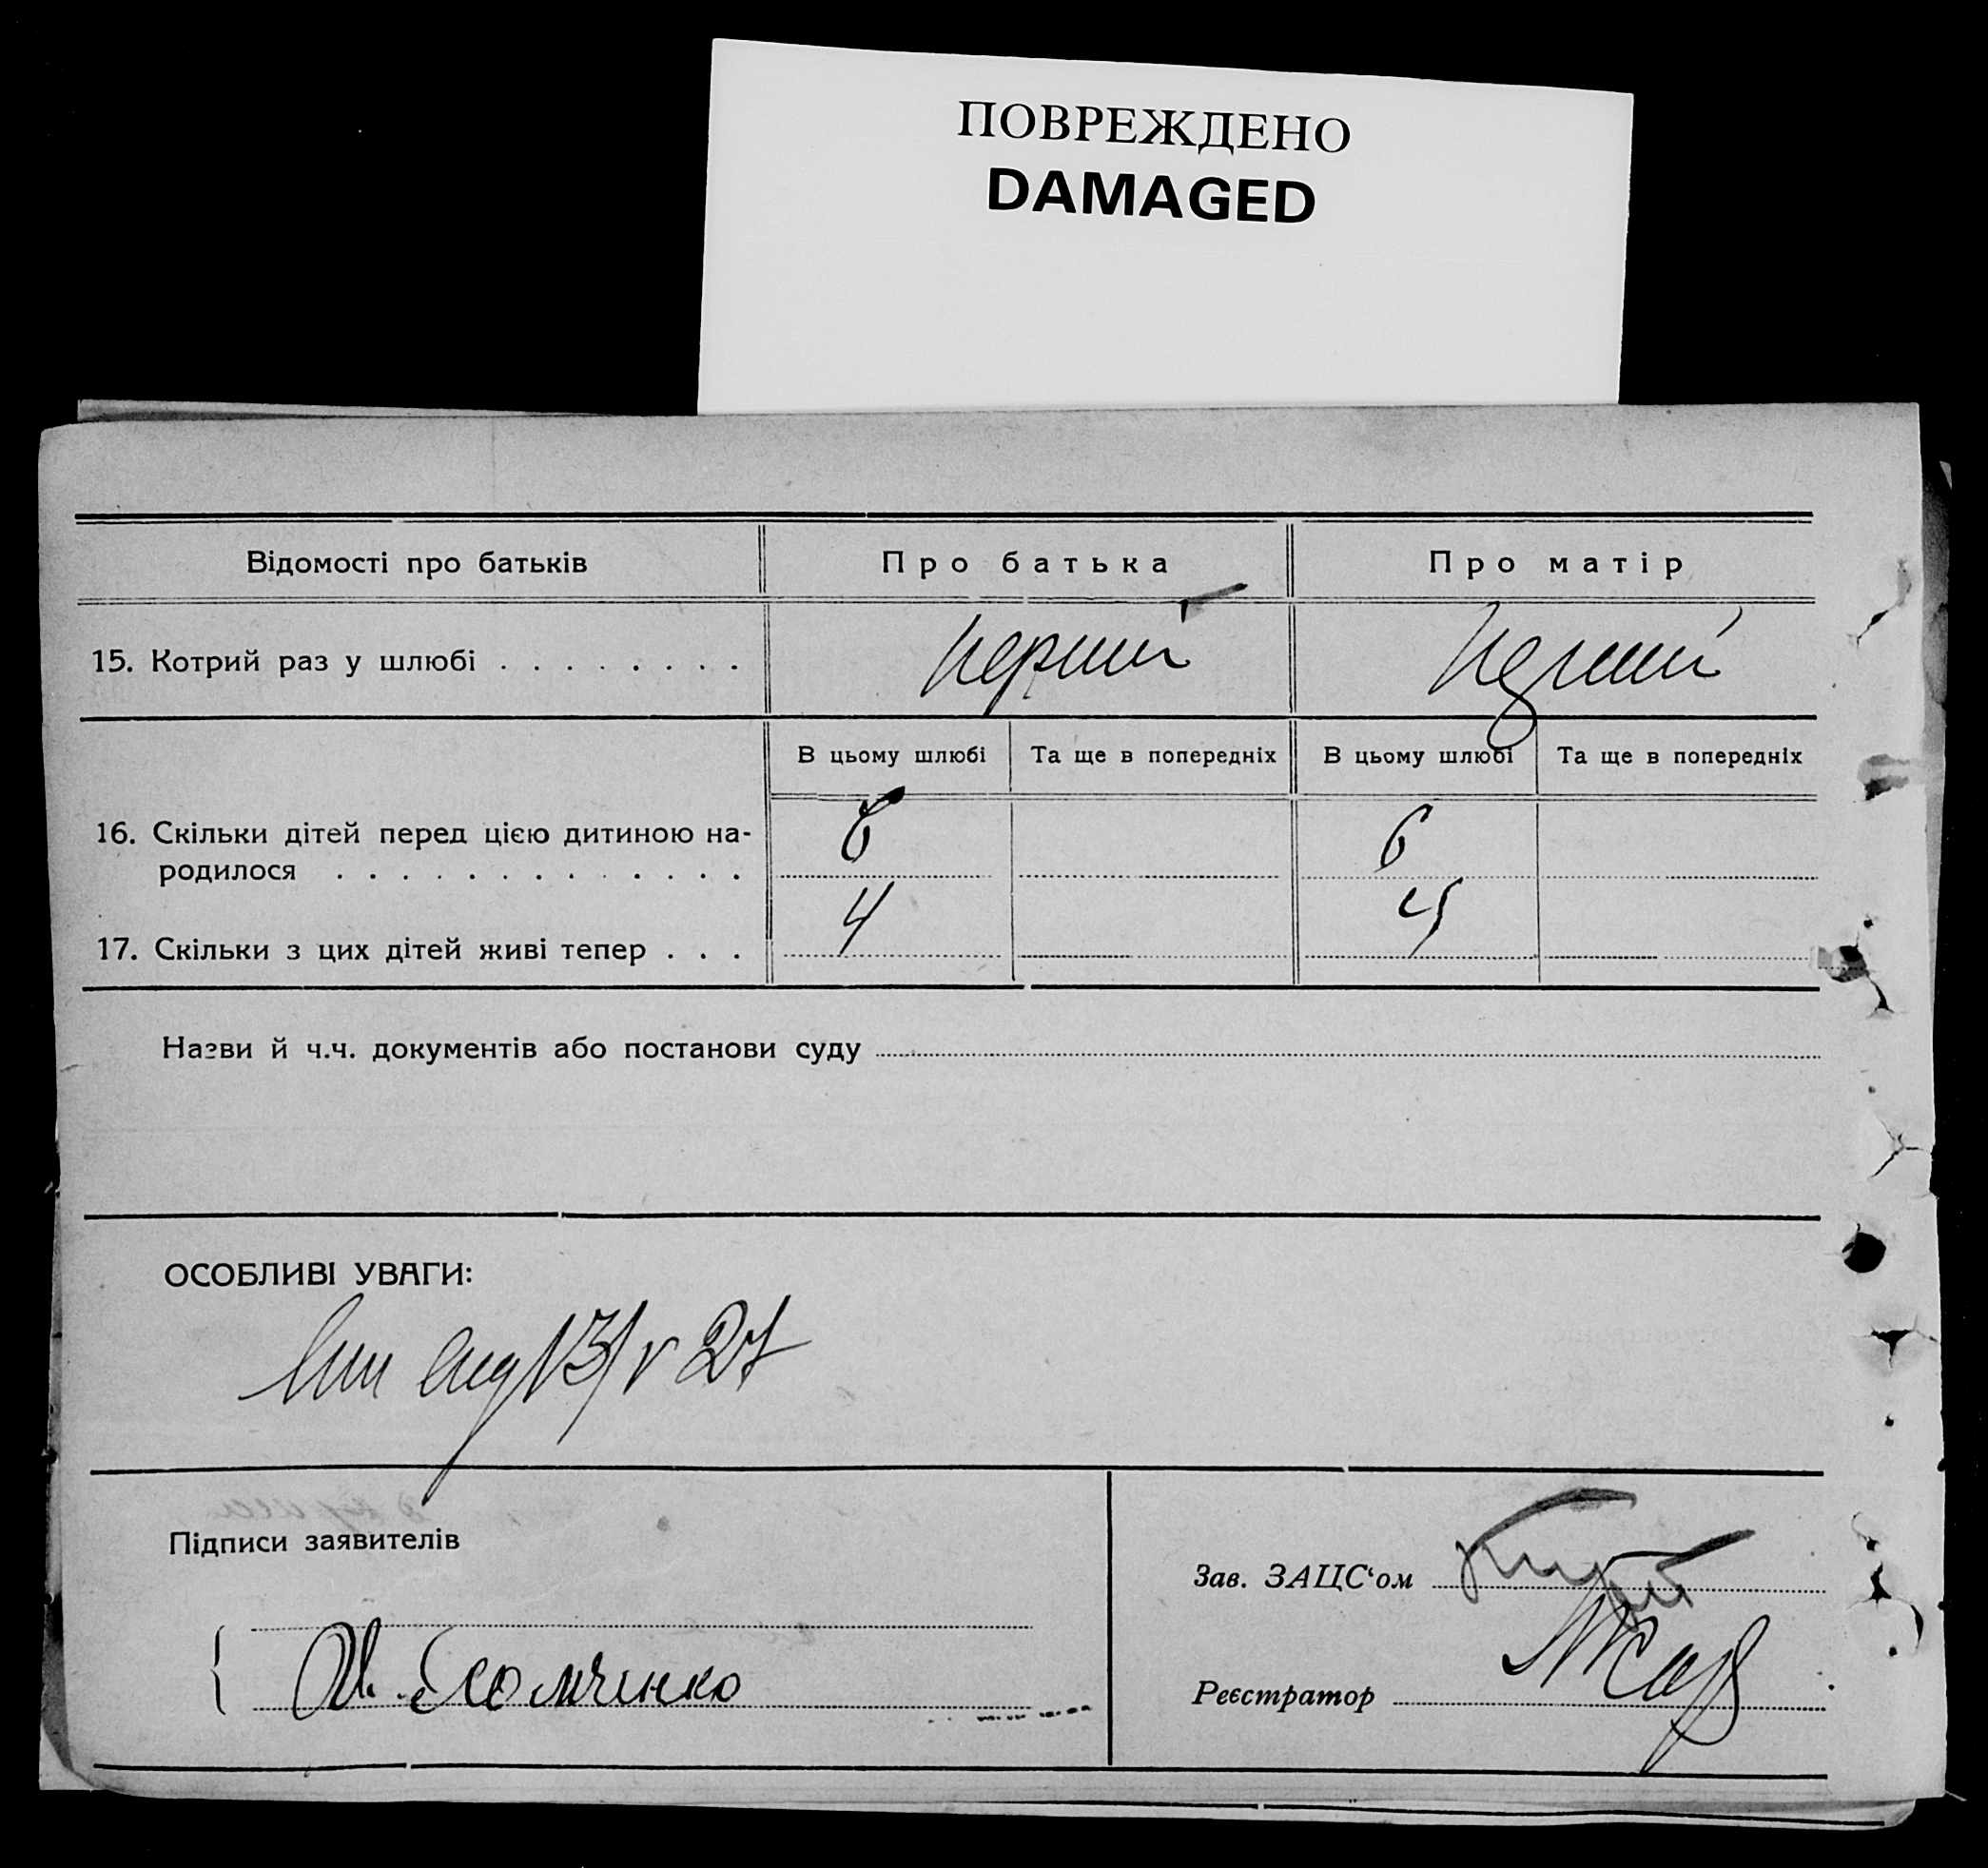 ПОВРЕЖДЕНО
DAMAGED
Відомості про батьків
Про батька
Про матір
15. Котрий раз у шлюбі . . . . . . . .
перший
перший
В цьому шлюбі
Та ще в попередніх
В цьому шлюбі
Та ще в попередніх
16. Скільки дітей перед цією дитиною на-
родилося . . . . . . . . . . . . . .
6
6
17. Скільки з цих дітей живі тепер . . .
4
4
Назви й ч.ч. документів або постанови суду
ОСОБЛИВІ УВАГИ:
27
Підписи заявителів
Зав. ЗАЦС‘ом
Реєстратор